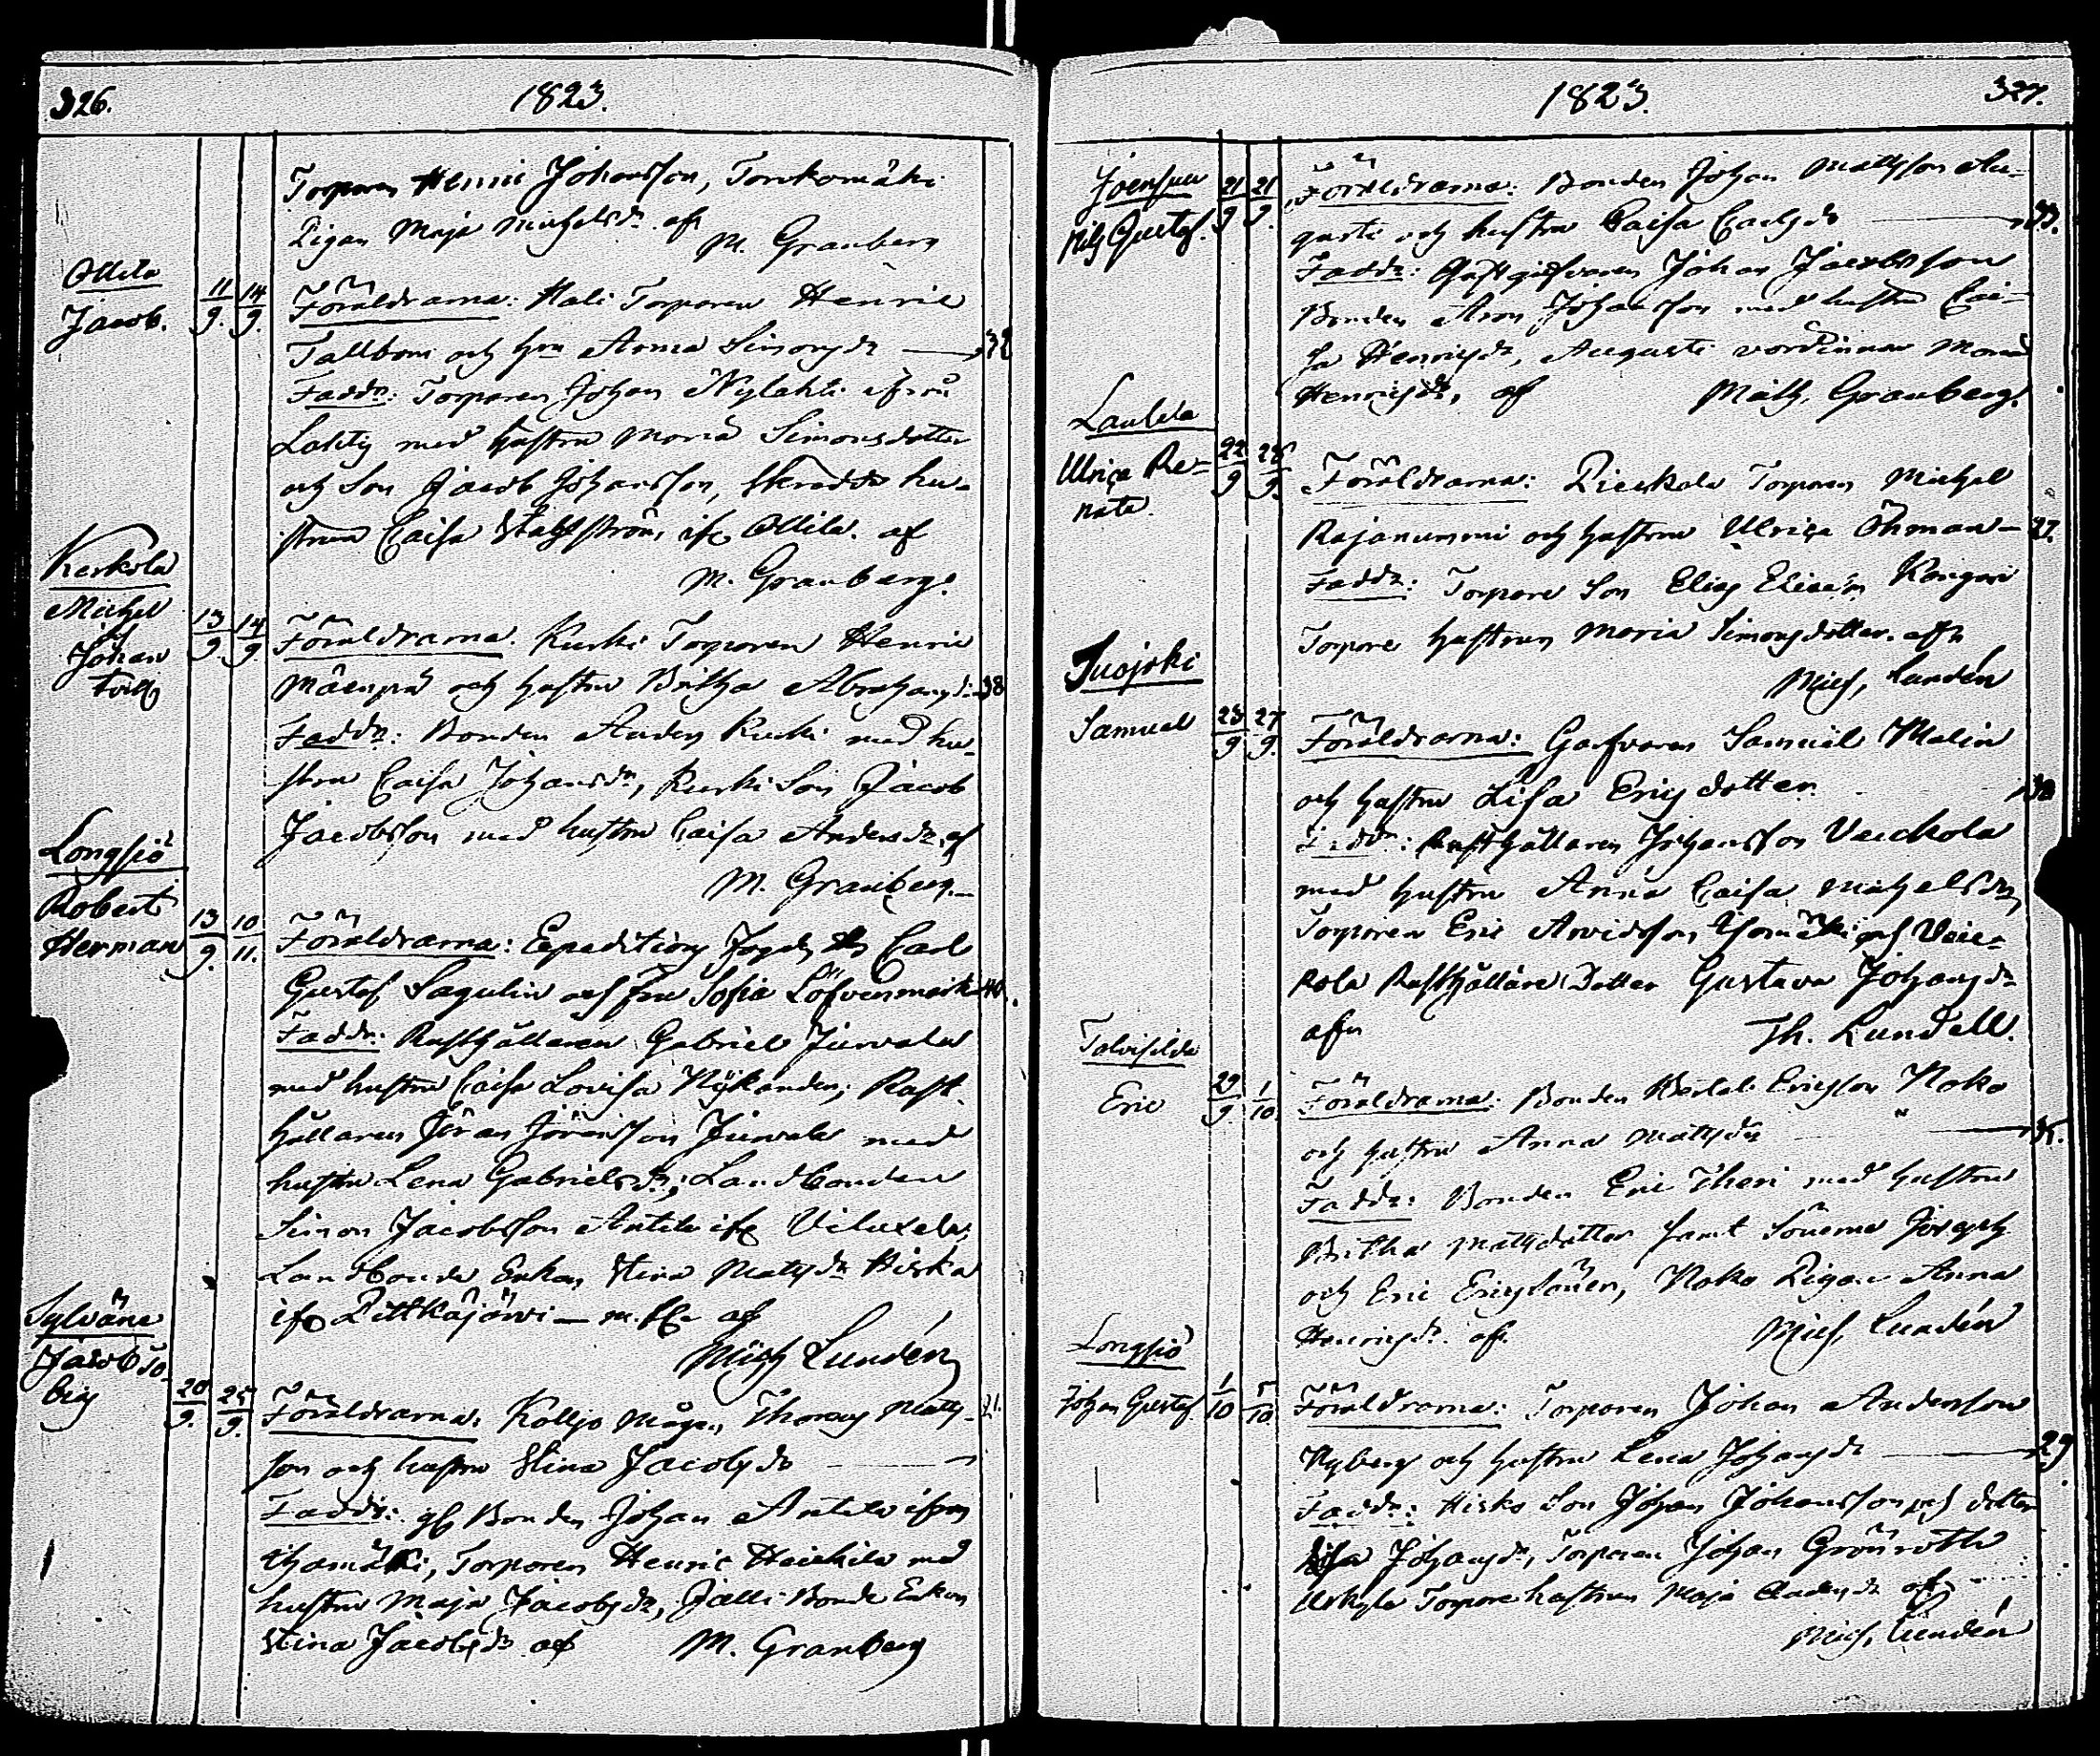 326.
1823.
Torparen Henric Johansson, Torckomäki
Pigan Maja Michelsdr. afr
M. Granberg
Ollila
Jacob.
11/9. 14/9.
Föräldrarna: Hali Torparen Henric
Tallbom och hu Anna Simonsdr 32
Faddr: Torparen Johan Nylahti ifrån
Lahti med hustru Maria Simonsdotter
och Son Jacob Johansson, Skreddr hu-
strun Caisa Stahlström, ifr Ollila. af
M. Granberg.
Kerkola
Michel
Johan
Tvill
13/9. 14/9.
Föräldrarna: Kurki Torparen Henric
Mäenpä och hustru Britha Abrahamsdr 38
Faddr: Bonden Anders Kurki med hu-
stru Caisa Johansdr, Kurki Son Jacob
Jacobsson med hustru Caisa Andersdr, af
M. Granberg.
Longsiö
Robert
Herman
13/9. 10/11.
Föräldrarna: Expeditions Fogden Carl
Gustaf Sagulin och fru Sofia Löfvenmark 40.
Faddr: Rusthållaren Gabriel Juvala
med hustru Caisa Lovisa Nykanden; Rust-
hållaren Jöran Jöransson Juvala med
hustru Lena Gabrielsdr; Landbonden
Simon Jacobsson Antila ifr Viluxela,
Landbonde Enkan Stina Matsdr Hiska
ifr Pittkäjärvi — m. fl. af
Mich Lundén
Sylväne
Jacob To-
bias
20/9. 25/9.
Föräldrarna: Kolljo Mågen Thomas Matts- 21.
son och hustru Stina Jacobsdr
Faddr: gl Bonden Johan Antila ifrån
Ihamäki, Torparen Henric Heickilä med
hustru Maja Jacobsdr, Jälli Bonde Enkan
Stina Jacobsdr af M. Granberg
1823.
327.
Joensuu
Nils Gustaf.
21/9 21/9.
Föräldrarna: Bonden Johan Mattsson Au-
gusti och hustru Caisa Carlsdr 33.
Faddr: Gästgifvaren Johan Jacobsson
Bonden Aron Johansson med hustru Cai-
sa Henricsdr, Augusti värdinnan Maria
Henricsdr, af Math. Granberg.
Laulela
Ulrica Re-
nata.
22/9 28/9.
Föräldrarna: Pieckola Torparen Michel
Rajanummi och hustru Ulrica Öhman — 27.
Faddr: Torpare Son Elias Eliesson Kangari
Torpare hustrun Maria Simonsdotter. afr
Mich, Lundén
Suojoki
Samuel
23/9 27/9.
Föräldrarna: Garfvaren Samuel Malin
och hustru Lisa Ericsdotter. 30
Faddr: Rusthållaren Johansson Veickola
med hustru Anna Caisa Michelsdr,
Torparen Eric Arvidsson Isomäki och Veic-
kola Rusthållare Dotter Gustava Johansdr
afr Th. Lundell.
Talvisilda
Eric
29/9. 1/10.
Föräldrarna: Bonden Bertel Ericsson Noko
och hustru Anna Mattsdr 35.
Faddr: Bonden Eric Theri med hustru
Britha Mattsdotter samt Sönerna Joseph
och Eric Ericssöner, Noko Pigan Anna
Henricsdr. afr. Mich, Lundén
Longsiö
Johan Gustaf
1/10 5/10.
Föräldrarna: Torparen Johan Andersson
Nyberg och hustru Lena Johansdr 29
Faddr: Hisko Son Johan Johansson och dotter
Lisa Johansdr, Torparen Johan Grönroth
Torpare hustrun Maja Andersdr af
Mich, Lundén